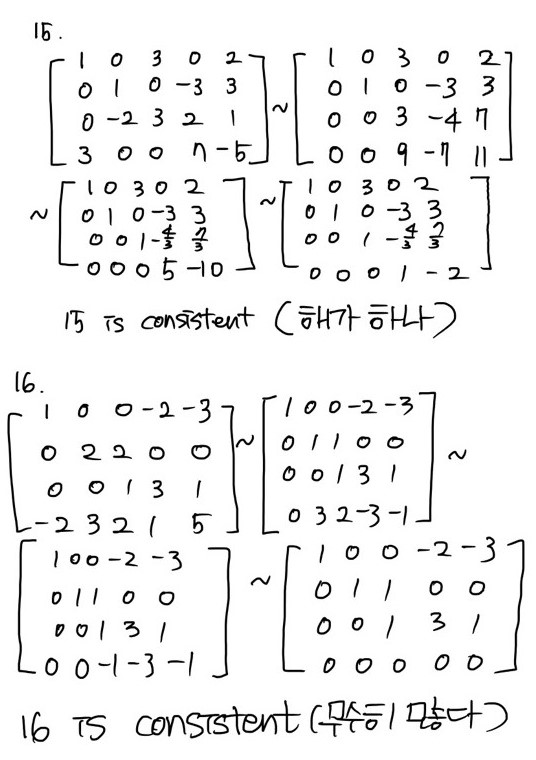 15.
1 0 3 0 2
0 1 0 -3 3
0 -2 3 2 1
3 0 0 7 -5
~
1 0 3 0 2
0 1 0 -3 3
0 0 3 -4 7
0 0 9 -7 11
~
1 0 3 0 2
0 1 0 -3 3
0 0 1 -4/3 7/3
0 0 0 5 -10
~
1 0 3 0 2
0 1 0 -3 3
0 0 1 -4/3 7/3
0 0 0 1 -2
15 is consistent (해가 하나)
16.
1 0 0 -2 -3
0 2 2 0 0
0 0 1 3 1
-2 3 2 1 5
~
1 0 0 -2 -3
0 1 1 0 0
0 0 1 3 1
0 3 2 -3 -1
~
1 0 0 -2 -3
0 1 1 0 0
0 0 1 3 1
0 0 -1 -3 -1
~
1 0 0 -2 -3
0 1 1 0 0
0 0 1 3 1
0 0 0 0 0
16 is consistent (무수히 많다)